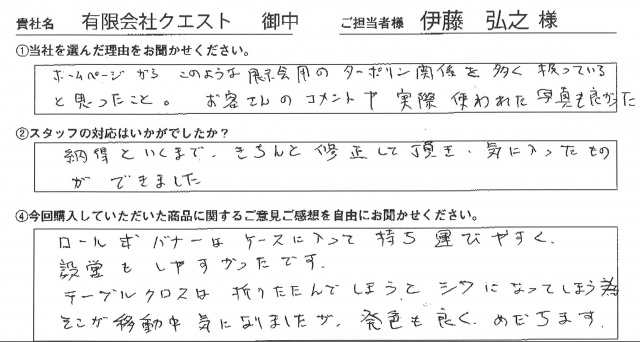 貴社名 有限会社クエスト 御中 ご担当者様 伊藤 弘之 様
①当社を選んだ理由をお聞かせください。
ホームページから このような展示会用のターポリン関係を多く扱っている
と思ったこと。 お客さんのコメントや実際使われた写真も良かった
②スタッフの対応はいかがでしたか？
納得といくまで、きちんと修正して頂き、気に入ったもの
ができました
④今回購入していただいた商品に関するご意見ご感想を自由にお聞かせください。
ロール式バナーはケースに入って持ち運びやすく、
設営もしやすかったです。
テーブルクロスは折りたたんでしまうとシワになってしまう為
そこが移動中気になりましたが、発色も良く、めだちます。